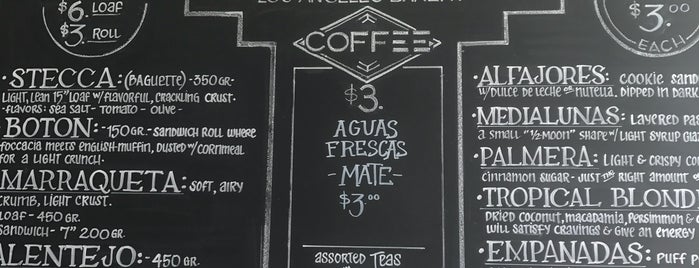 $6. LOAF
$3. ROLL
·STECCA: (BAGUETTE) -350 GR-
LIGHT, LEAN 15" LOAF W/ FLAVORFUL, CRACKLING CRUST.
-FLAVORS: SEA SALT - TOMATO - OLIVE-
·BOTON: -150 GR.- SANDWICH ROLL WHERE
FOCCACIA MEETS ENGLISH MUFFIN, DUSTED W/CORNMEAL
FOR A LIGHT CRUNCH.
MARRAQUETA: SOFT, AIRY
CRUMB, LIGHT CRUST.
LOAF - 450 GR.
SANDWICH - 7" 200 GR.
ALENTEJO: -450 GR.
LOS ANGELES BAKERY
COFFEE
$3.
AGUAS
FRESCAS
-MATE-
$3.00
ASSORTED TEAS
$3.00
EACH
·ALFAJORES: COOKIE SAND
W/DULCE DE LECHE OR NUTELLA. DIPPED IN DARK
·MEDIALUNAS: LAYERED PAS
A SMALL "½ MOON" SHAPE W/ LIGHT SYRUP GLA
·PALMERA: LIGHT & CRISPY CO
CINNAMON SUGAR - JUST THE RIGHT AMOUNT O
·TROPICAL BLOND
DRIED COCONUT, MACADAMIA, PERSIMMON & C
WILL SATISFY CRAVINGS & GIVE AN ENERGY
·EMPANADAS: PUFF P